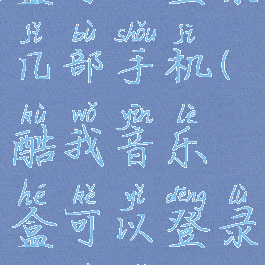 jǐ bù shǒu jī
几部手机(
kù wǒ yīn lè
酷我音乐
hé kě yǐ dēng lù
盒可以登录